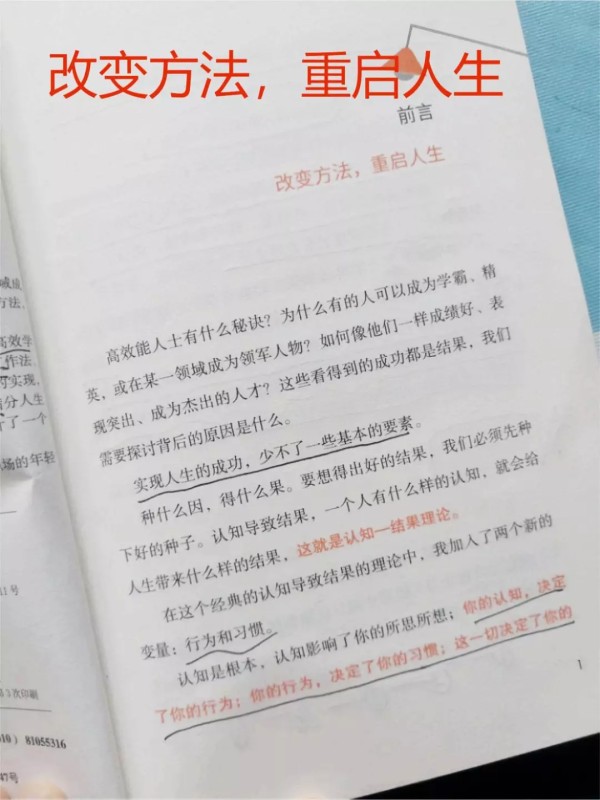 改变方法，重启人生
前言
改变方法，重启人生
高效能人士有什么秘诀？为什么有的人可以成为学霸、精
英，或在某一领域成为领军人物？如何像他们一样成绩好、表
现突出、成为杰出的人才？这些看得到的成功都是结果，我们
需要探讨背后的原因是什么。
实现人生的成功，少不了一些基本的要素。
种什么因，得什么果。要想得出好的结果，我们必须先种
下好的种子。认知导致结果，一个人有什么样的认知，就会给
人生带来什么样的结果，这就是认知—结果理论。
在这个经典的认知导致结果的理论中，我加入了两个新的
变量：行为和习惯。
认知是根本，认知影响了你的所思所想；你的认知，决定
了你的行为；你的行为，决定了你的习惯；这一切决定了你的
1
方法、
高效学
工作法、
实现，
分人生
了一个
场的年轻
11 号
3 次印刷
10）81055316
47号